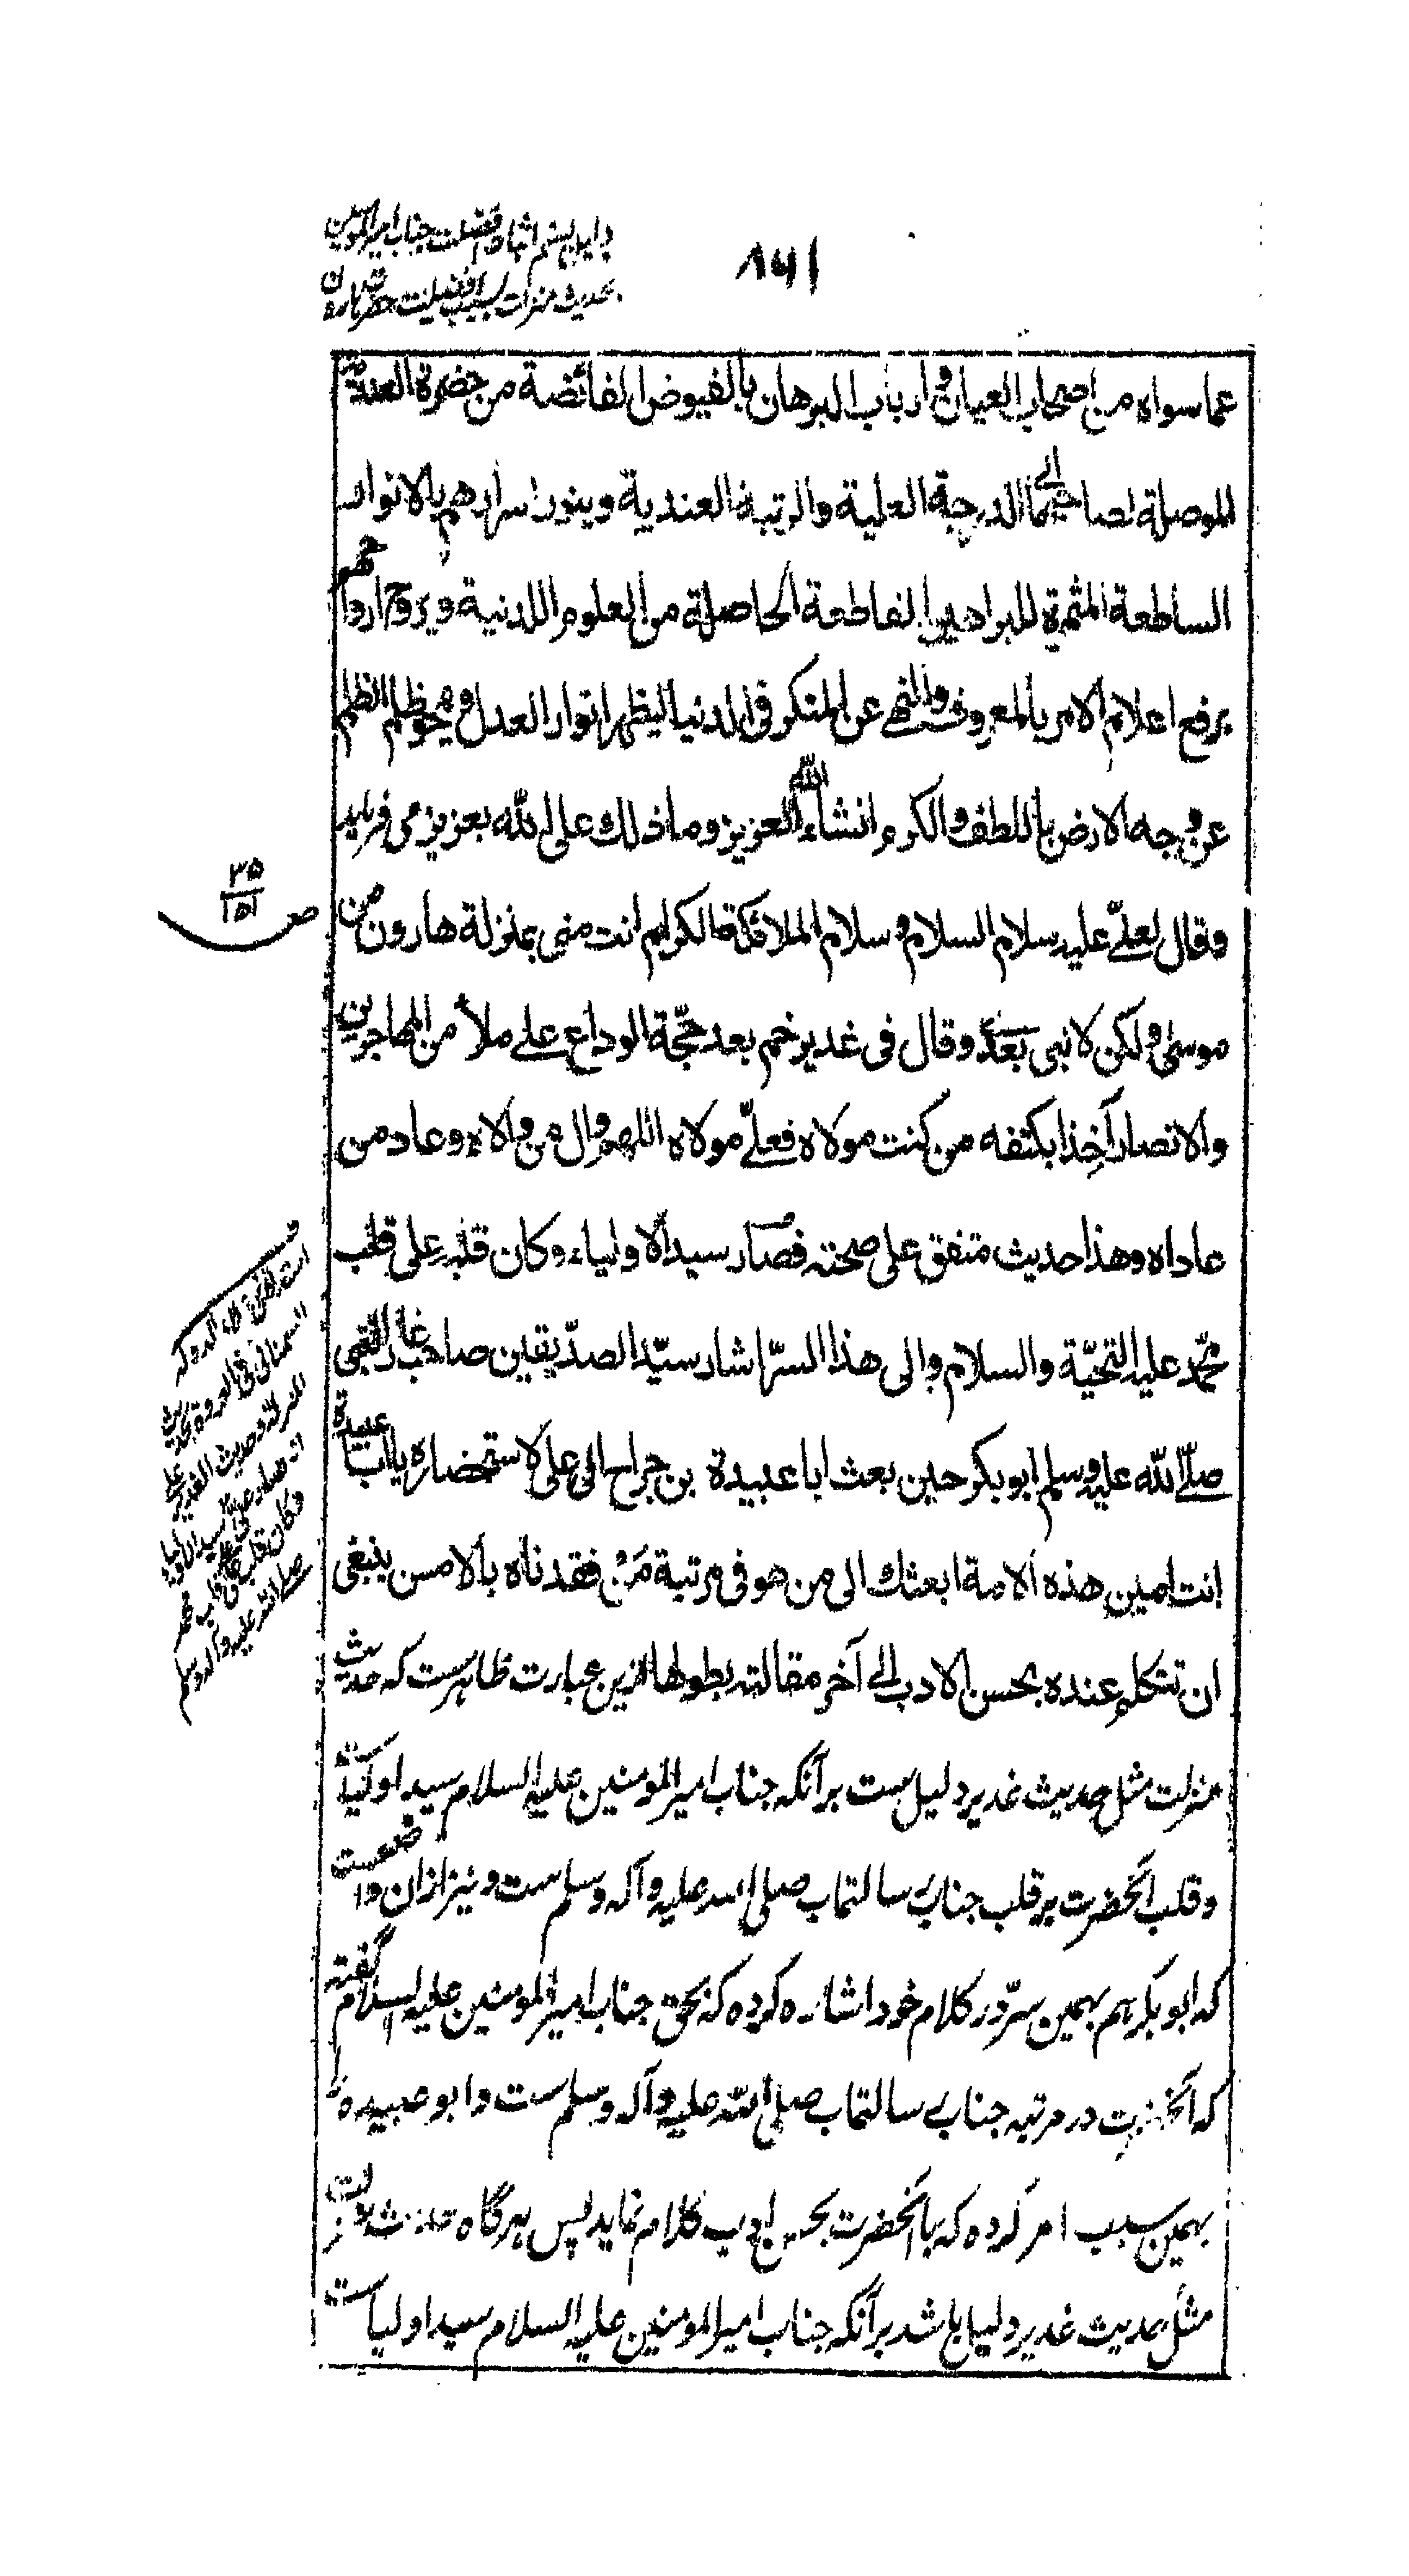 ۸۶۱
دلیل بستم اثبات افضلیت جناب امیر المومنین
بحدیث منزلت بسبب افضلیت حضرت هارون
عما سواه من اصحاب العیان و ارباب البرهان بالفیوض الفائضة من حضرة العندیة
الموصلة لصاحبها الی الدرجة العلیة والرتبة العندیة وینور اسرارهم بالانوار
الساطعة المثمرة للبراهین القاطعة الحاصلة من العلوم اللدنیة ویروح ارواحهم
برفع اعلام الامر بالمعروف والنهی عن المنکر فی الدنیا لیظهر انوار العدل ویمحو ظلم الظلم
عن وجه الارض باللطف والکرم انشاء الله العزیز وما ذلک علی الله بعزیز می فرماید
وقال لعلیّ علیه سلام السلام وسلام الملائکة الکرام انت منی بمنزلة هارون من
ص ۳۵ / ۱۵۱
موسی ولکن لا نبی بعدی وقال فی غدیر خم بعد حجّة الوداع علی ملأ من المهاجرین
والانصار آخذا بکتفه من کنت مولاه فعلیّ مولاه اللهم وال من والاه وعاد من
عاداه وهذا حدیث متفق علی صحته فصار سید الاولیاء وکان قلبه علی قلب
محمّد علیه التحیّة والسلام والی هذا السرّ اشار سیّد الصدّیقین صاحب غار النبی
صلّی الله علیه وسلم ابو بکر حین بعث ابا عبیدة بن جراح الی علی لاستحضاره یا ابا عبیدة
انت امین هذه الامة ابعثک الی من هو فی مرتبة مَن فقدناه بالامس ینبغی
ان تتکلم عنده بحسن الادب الی آخر مقالته بطولها ازین عبارت ظاهرست که حدیث
منزلت مثل حدیث غدیر دلیل ست برآنکه جناب امیر المومنین علیه السلام سید اولیاست
وقلب آنحضرت بر قلب جناب رسالتماب صلی الله علیه وآله وسلم ست ونیز ازان واضحست
که ابو بکر هم بهمین سرّ در کلام خود اشاره کرده که بحق جناب امیر المومنین علیه السلام گفته
که آنحضرت در مرتبه جناب رسالتماب صلی الله علیه وآله وسلم ست وابو عبیده را
بهمین سبب امر کرده که با آنحضرت بحسن ادب کلام نماید پس هرگاه حدیث منزلت
مثل حدیث غدیر دلیل باشد برآنکه جناب امیر المومنین علیه السلام سید اولیاست
ف
استدلال علاء الدولة
السمنانی فی العروة بحدیث
المنزلة وحدیث الغدیر علی
ان صار علی سید الاولیاء
وکان قلبه علی قلب محمد
صلی الله علیه وآله وسلم